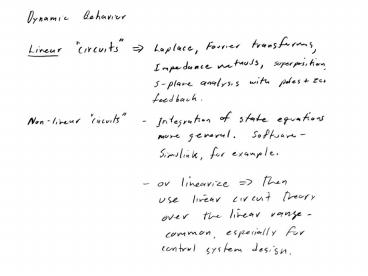 Dynamic Behavior
Linear "circuits" ⇒ Laplace, Fourier transforms,
Impedance methods, superposition
s-plane analysis with poles +
feedback.
Non-linear "circuits" - Integration of state equations
more general. Software -
Simulink, for example.
- or linearize ⇒ then
use linear circuit theory
over the linear range -
common, especially for
control system design.